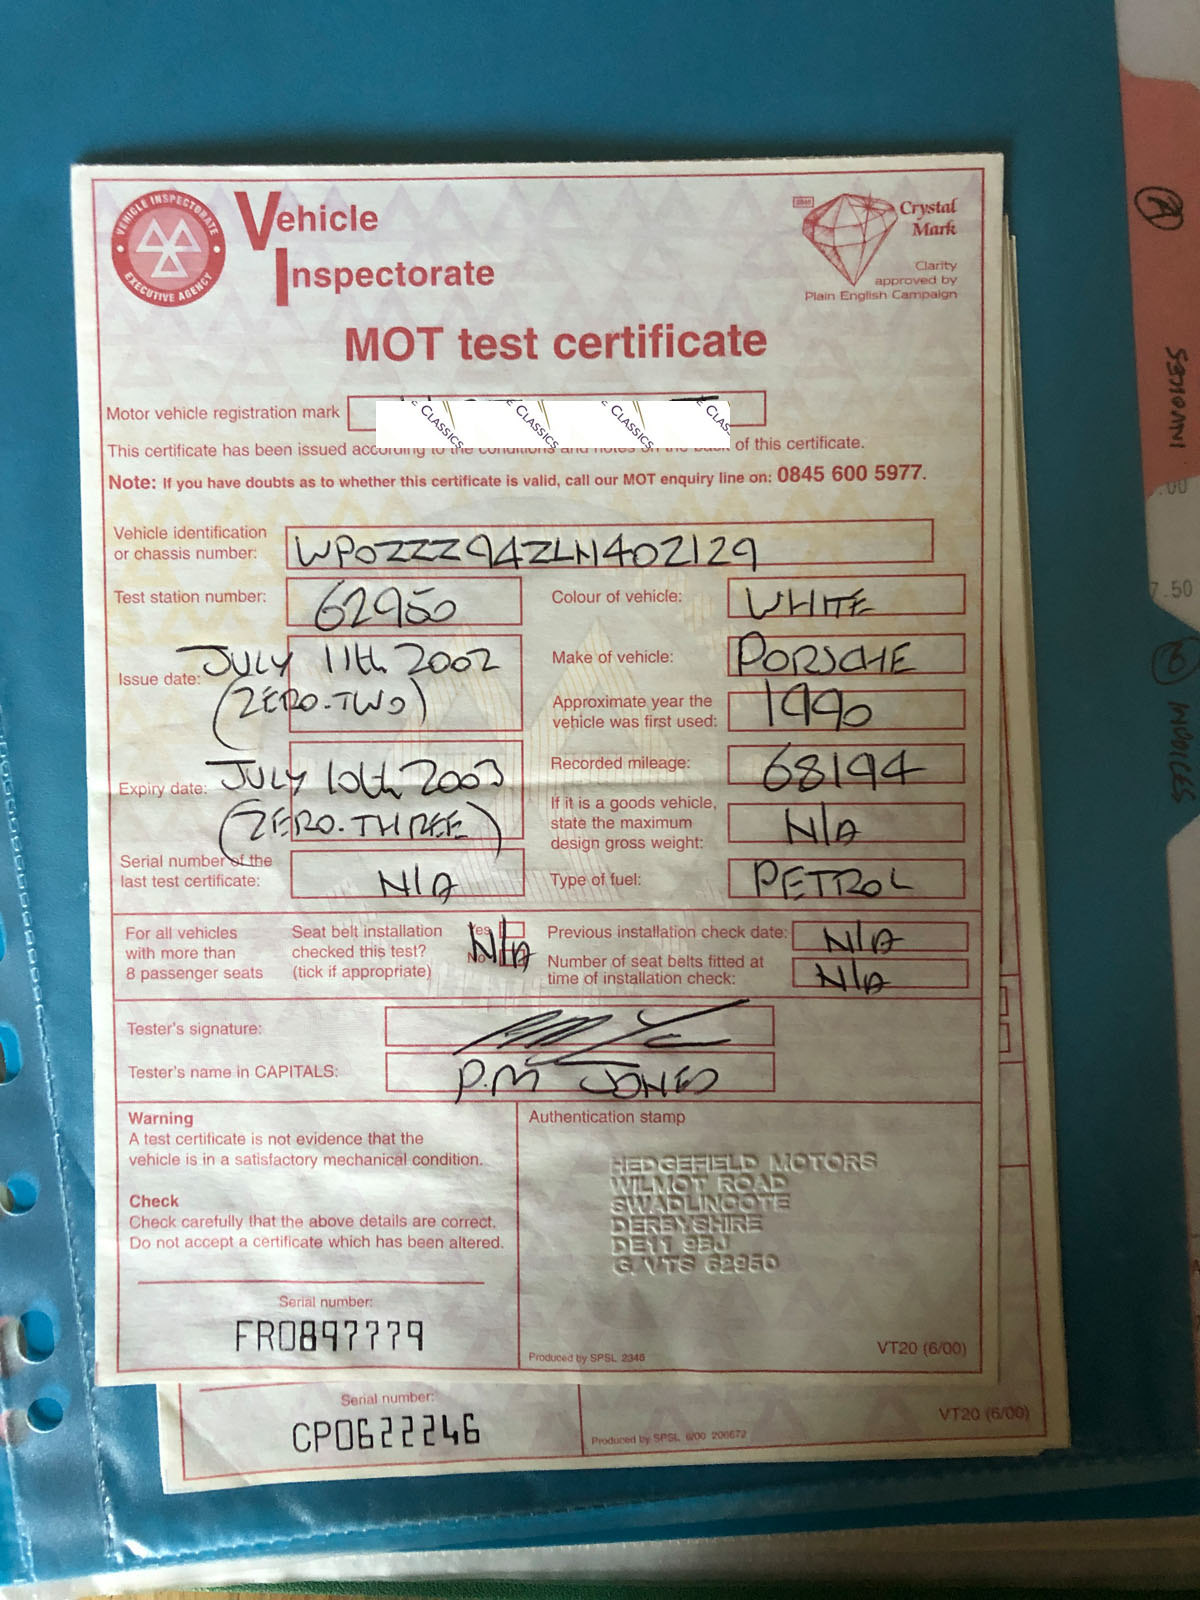 VEHICLE INSPECTORATE
EXECUTIVE AGENCY
Vehicle
Inspectorate
Crystal
Mark
Clarity
approved by
Plain English Campaign
MOT test certificate
Motor vehicle registration mark
CLASSICS CLASSICS CLASSICS CLASS
This certificate has been issued according to the conditions and notes on the back of this certificate.
Note: If you have doubts as to whether this certificate is valid, call our MOT enquiry line on: 0845 600 5977.
Vehicle identification
or chassis number: WP0ZZZ94ZLN402129
Test station number: 62950
Colour of vehicle: WHITE
Issue date: JULY 11th 2002
(ZERO-TWO)
Make of vehicle: PORSCHE
Approximate year the
vehicle was first used: 1990
Expiry date: JULY 10th 2003
(ZERO-THREE)
Recorded mileage: 68194
If it is a goods vehicle,
state the maximum
design gross weight: N/A
Serial number of the
last test certificate: N/A
Type of fuel: PETROL
For all vehicles
with more than
8 passenger seats
Seat belt installation
checked this test?
(tick if appropriate)
Yes
No
N/A
Previous installation check date: N/A
Number of seat belts fitted at
time of installation check: N/A
Tester's signature:
Tester's name in CAPITALS: P.M JONES
Warning
A test certificate is not evidence that the
vehicle is in a satisfactory mechanical condition.
Check
Check carefully that the above details are correct.
Do not accept a certificate which has been altered.
Serial number:
FR0897779
Authentication stamp
HEDGEFIELD MOTORS
WILMOT ROAD
SWADLINCOTE
DERBYSHIRE
DE11 9BJ
G. VTS 62950
Produced by SPSL 2346
VT20 (6/00)
Serial number:
CP0622246
Produced by SPSL 6/00 206672
VT20 (6/00)
A
INVOICES
.00
7.50
INVOICES